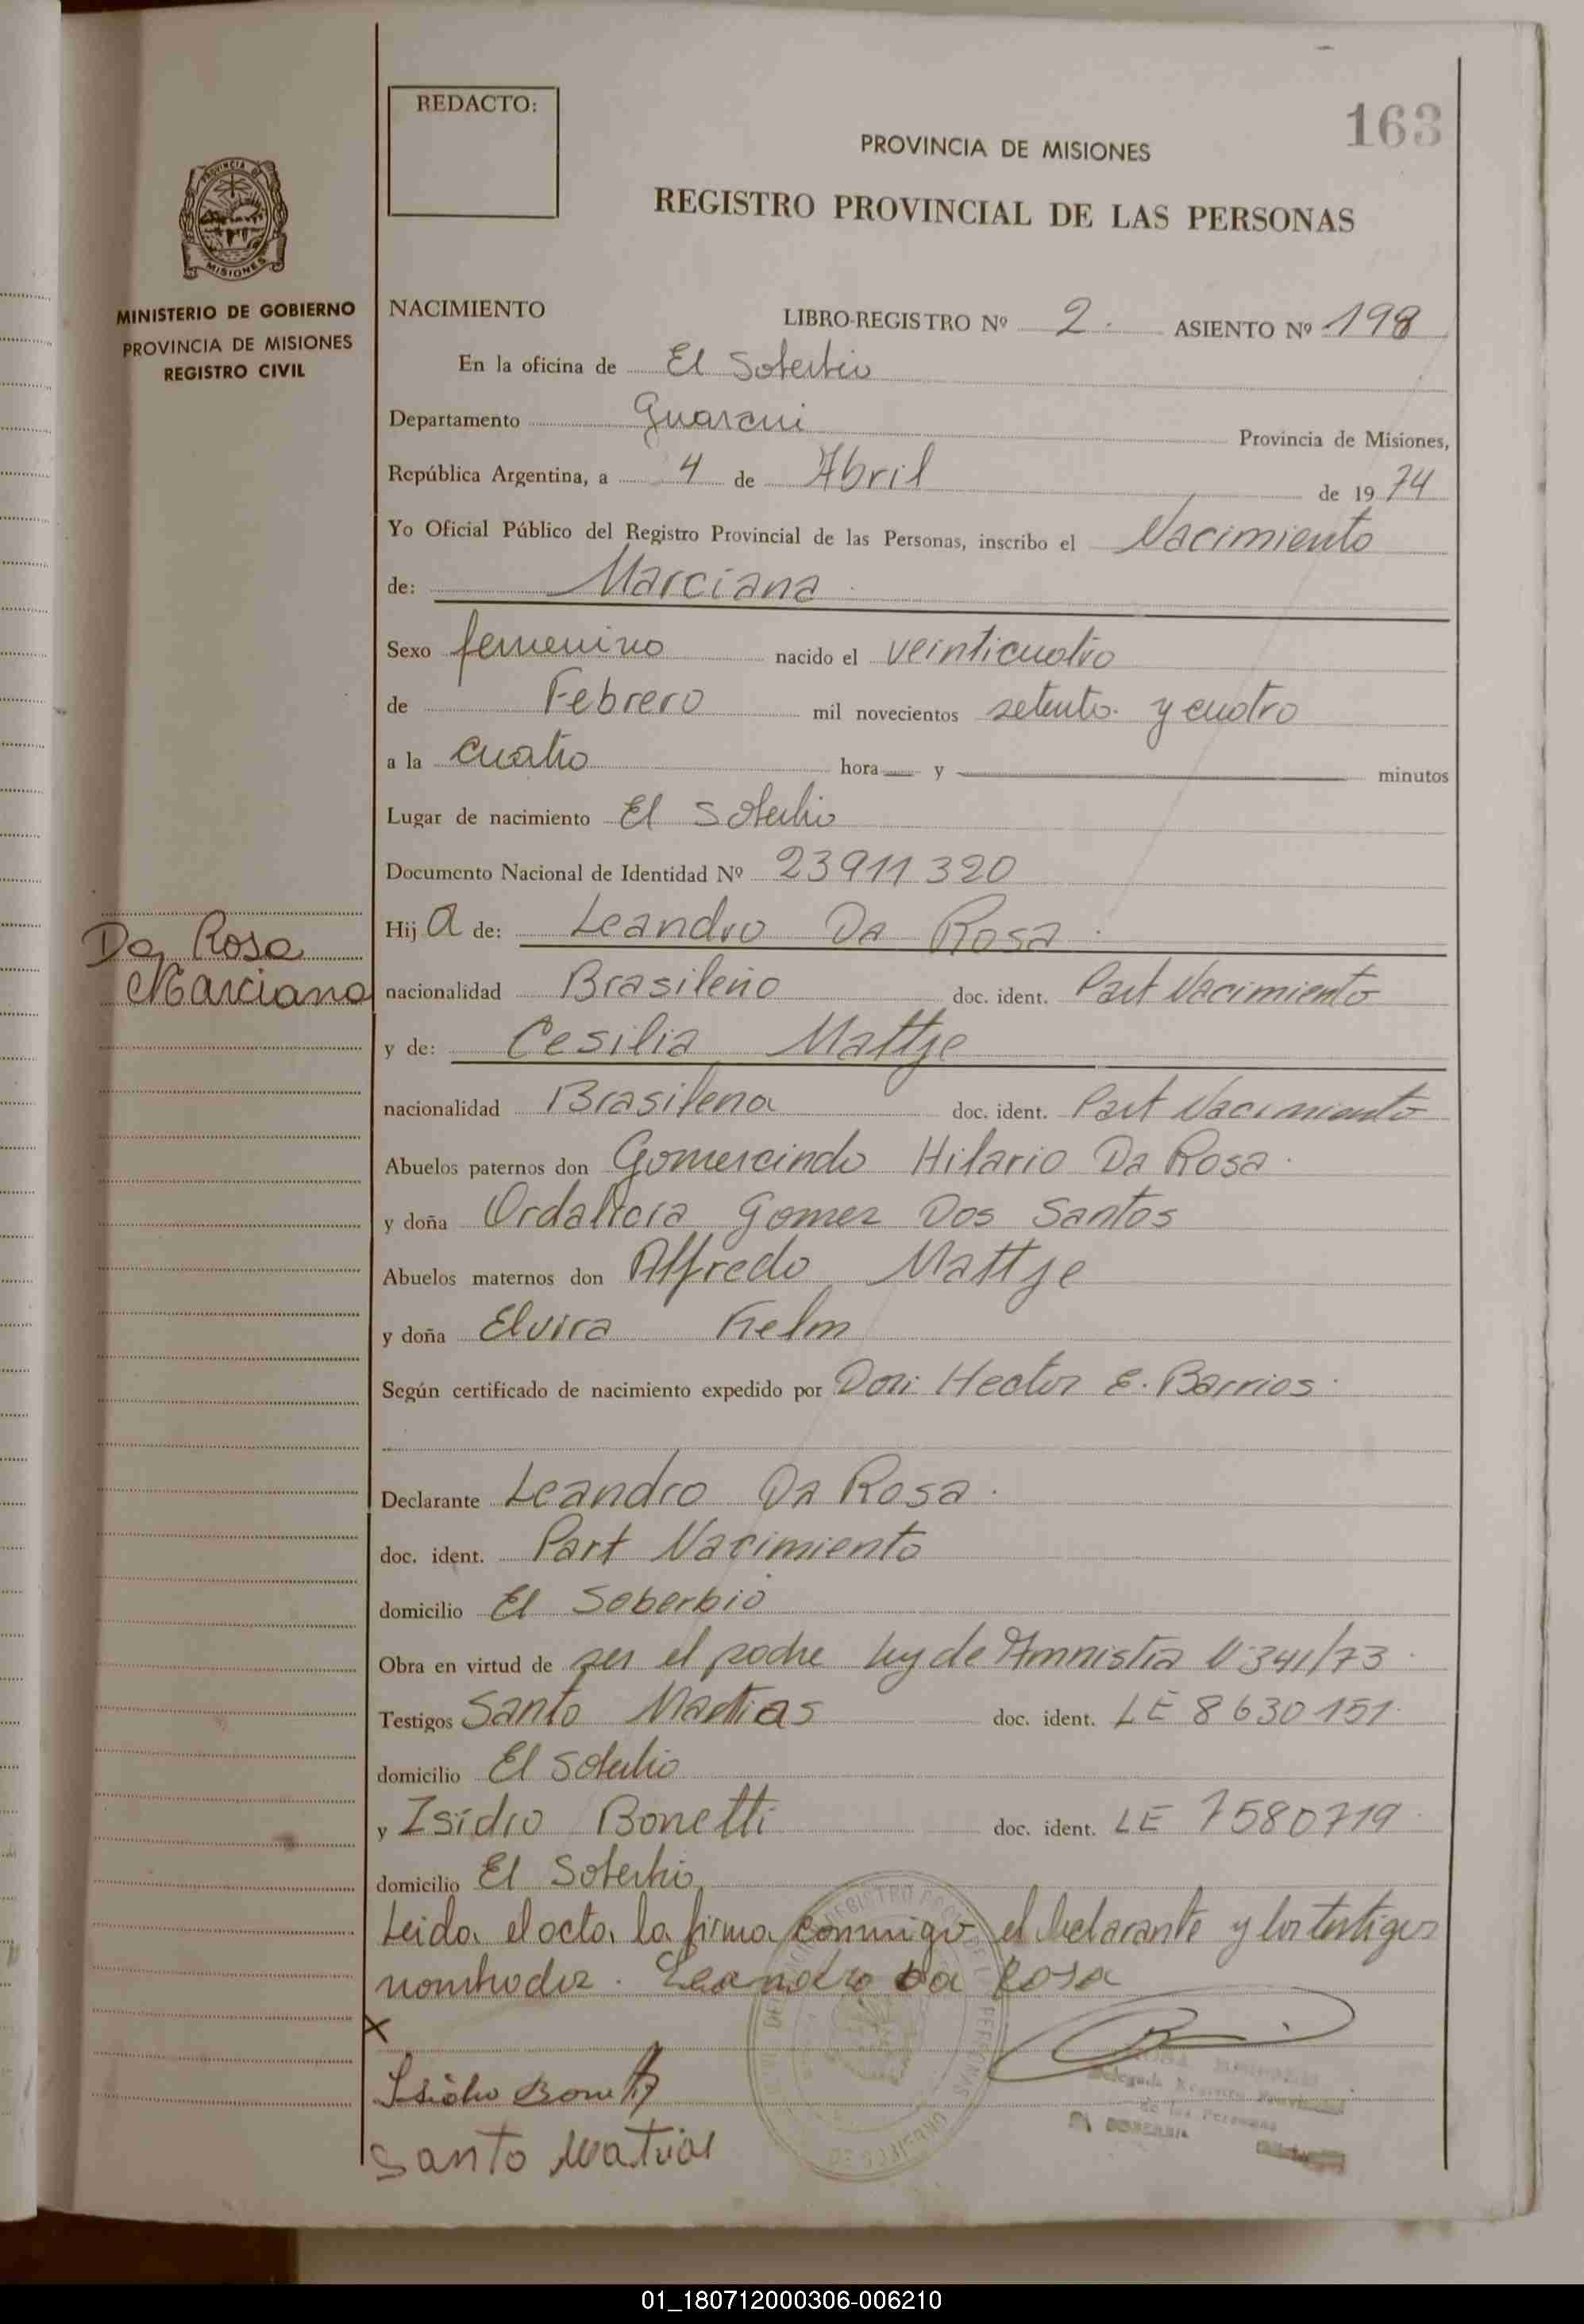 REDACTO:
163
PROVINCIA DE MISIONES
REGISTRO PROVINCIAL DE LAS PERSONAS
PROVINCIA DE
MISIONES
MINISTERIO DE GOBIERNO
PROVINCIA DE MISIONES
REGISTRO CIVIL
NACIMIENTO LIBRO-REGISTRO Nº 2. ASIENTO Nº 198
En la oficina de El Soberbio
Departamento Guarani Provincia de Misiones,
República Argentina, a 4 de Abril de 19 74
Yo Oficial Público del Registro Provincial de las Personas, inscribo el Nacimiento
de: Marciana
Sexo femenino nacido el veinticuatro
de Febrero mil novecientos setenta y cuatro
a la cuatro hora y minutos
Lugar de nacimiento El Soberbio
Documento Nacional de Identidad Nº 23911320
Da Rosa
Marciana
Hij a de: Leandro Da Rosa
nacionalidad Brasileño doc. ident. Part Nacimiento
y de: Cesilia Mattje
nacionalidad Brasilena doc. ident. Part Nacimiento
Abuelos paternos don Gomercindo Hilario Da Rosa
y doña Gomez Dos Santos
Abuelos maternos don Alfredo Mattje
y doña Elvira Kelm
Según certificado de nacimiento expedido por Hector E. Barrios
Declarante Leandro Da Rosa
doc. ident. Part Nacimiento
domicilio El Soberbio
Obra en virtud de ser el padre Ley de Amnistia Nº 341/73
Testigos Santo Martias doc. ident. LE 8630151
domicilio El Soberbio
y Isidro Bonetti doc. ident. LE 7580719
domicilio El Soberbio
Leida el acta, la firma conmigo el declarante y los testigos
nombrados. Leandro Da Rosa
X
Isidro Bonetti
Santo Matias
Delegada Registro Provincial
de las Personas
EL SOBERBIO
01_180712000306-006210